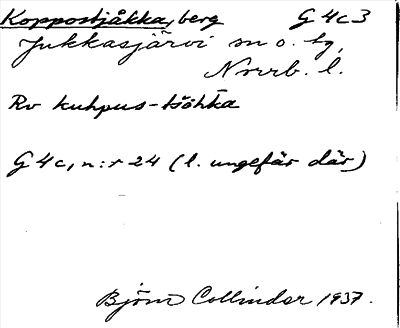 Koppostjåkka, berg G4c3
Jukkasjärvi sn o. tg,
Norrb. l.
Rv kuhpus-tšǒhka
G4c, n:r 24 (l. ungefär där)
Björn Collinder 1937.